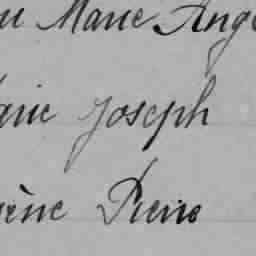 Marie Ange
Marie Joseph
ène Pierre